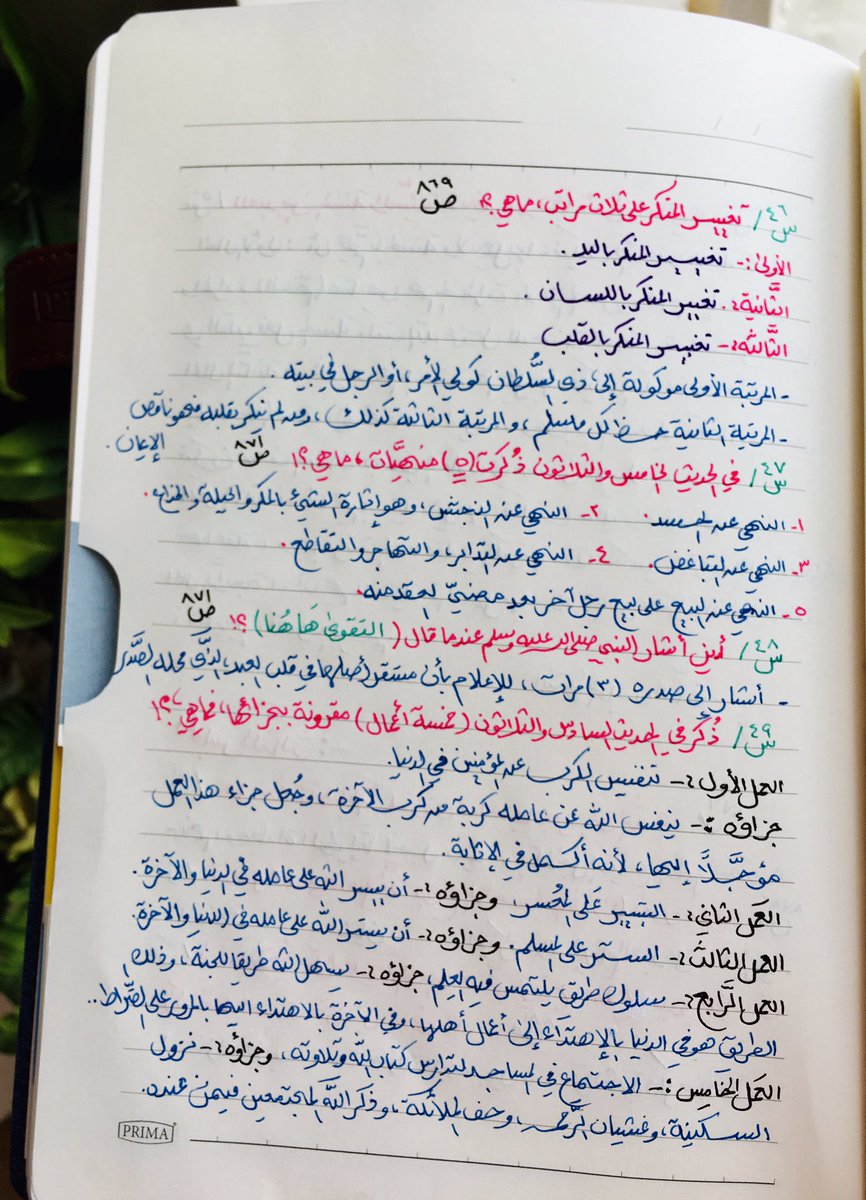 س٤٦/ تغيير المنكر على ثلاث مراتب، ماهي؟! ص ٨٦٩
الأولى:- تغيير المنكر باليد.
الثَّانية:- تغيير المنكر باللسان.
الثَّالثه:- تغيير المنكر بالقلب
- المرتبة الأولى موكولة إلى ذي السُّلطان كولي الأمر، أو الرجل في بيته.
- المرتبة الثانية حظ كل مسلم، والمرتبة الثالثة كذلك، ومن لم ينكر بقلبه فهو ناقص الإيمان.
س٤٧/ في الحديث الخامس والثلاثون ذُكرت (٥) منهيَّات، ماهي؟! ص ٨٧١
١- النهي عن الحسد. ٢- النهي عن النجش، وهو إثارة الشيئ بالمكر والحيلة والخداع.
٣- النهي عن التباغض. ٤- النهي عن التدابر، والتهاجر والتقاطع.
٥- النهي عن البيع على بيع رجل آخر بعد مضيّ العقد منه.
س٤٨/ أين أشار النبي صلى الله عليه وسلم عندما قال (التقوى هَاهُنا)؟! ص ٨٧١
- أشار إلى صدره (٣) مرات، للإعلام بأن مستقر أصلها في قلب العبد، الذَّي محله الصَّدر
س٤٩/ ذُكر في الحديث السادس والثلاثون (خمسة أعمال) مقرونة بجزائها، فماهي؟!
العمل الأول:- تنفيس الكرب عن المؤمنين في الدنيا.
جزاؤه:- ينفس الله عن عامله كربة من كرب الآخرة، وجُعل جزاء هذا العمل
مؤجَّلاً إليها، لأنه أكمل في الإثابة.
العمل الثاني:- التيسير على المُعسر، وجزاؤه:- أن ييسر الله على عامله في الدنيا والآخرة.
العمل الثالث:- الستر على المسلم. وجزاؤه:- أن يستر الله على عامله في الدنيا والآخرة.
العمل الرَّابع:- سلوك طريق يلتمس فيه العلم، جزاؤه:- يسهل الله طريقا للجنة، وذلك
الطريق هو في الدنيا بالإهتداء إلى أعمال أهلها، وفي الآخرة بالاهتداء إليها بالمرور على الصِّراط..
العمل الخامس:- الاجتماع في المساجد لتدارس كتاب الله وتلاوته، وجزاؤه:- نزول
السكينة، وغشيان الرَّحمة، وحف الملائكة، وذكر الله المجتمعين فيمن عنده.
PRIMA